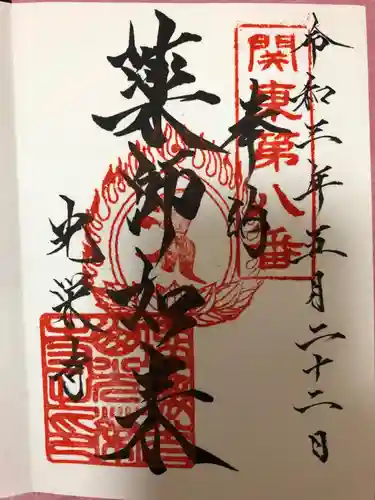 令和三年五月二十二日
関東第八番
奉納
薬師如来
光栄寺